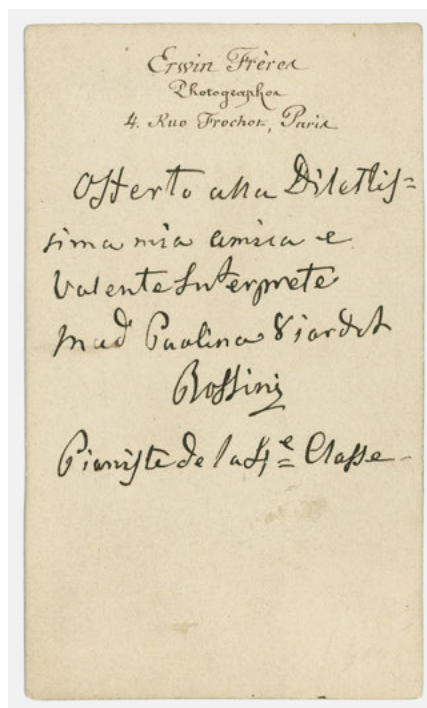 Erwin Frères
Photographes
4. Rue Frochot, Paris
Offerto alla Dilettis=
sima mia amica e
Valente Interprete
Mad Paolina Viardot
Rossini
Pianiste de la 4e Classe